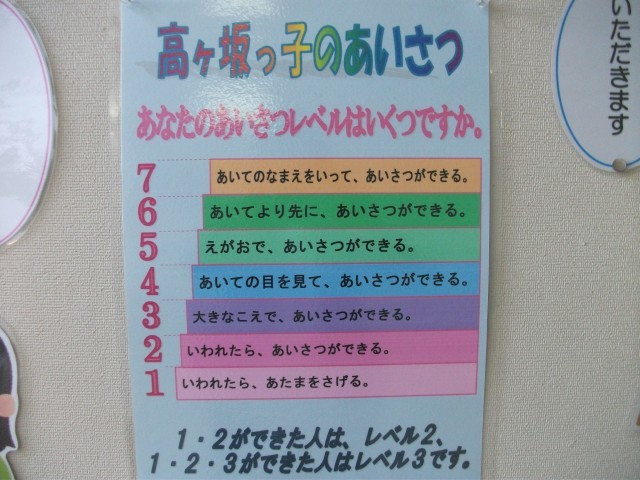 高ヶ坂っ子のあいさつ
あなたのあいさつレベルはいくつですか。
7 あいてのなまえをいって、あいさつができる。
6 あいてより先に、あいさつができる。
5 えがおで、あいさつができる。
4 あいての目を見て、あいさつができる。
3 大きなこえで、あいさつができる。
2 いわれたら、あいさつができる。
1 いわれたら、あたまをさげる。
1・2ができた人は、レベル2、
1・2・3ができた人はレベル3です。
いただきます